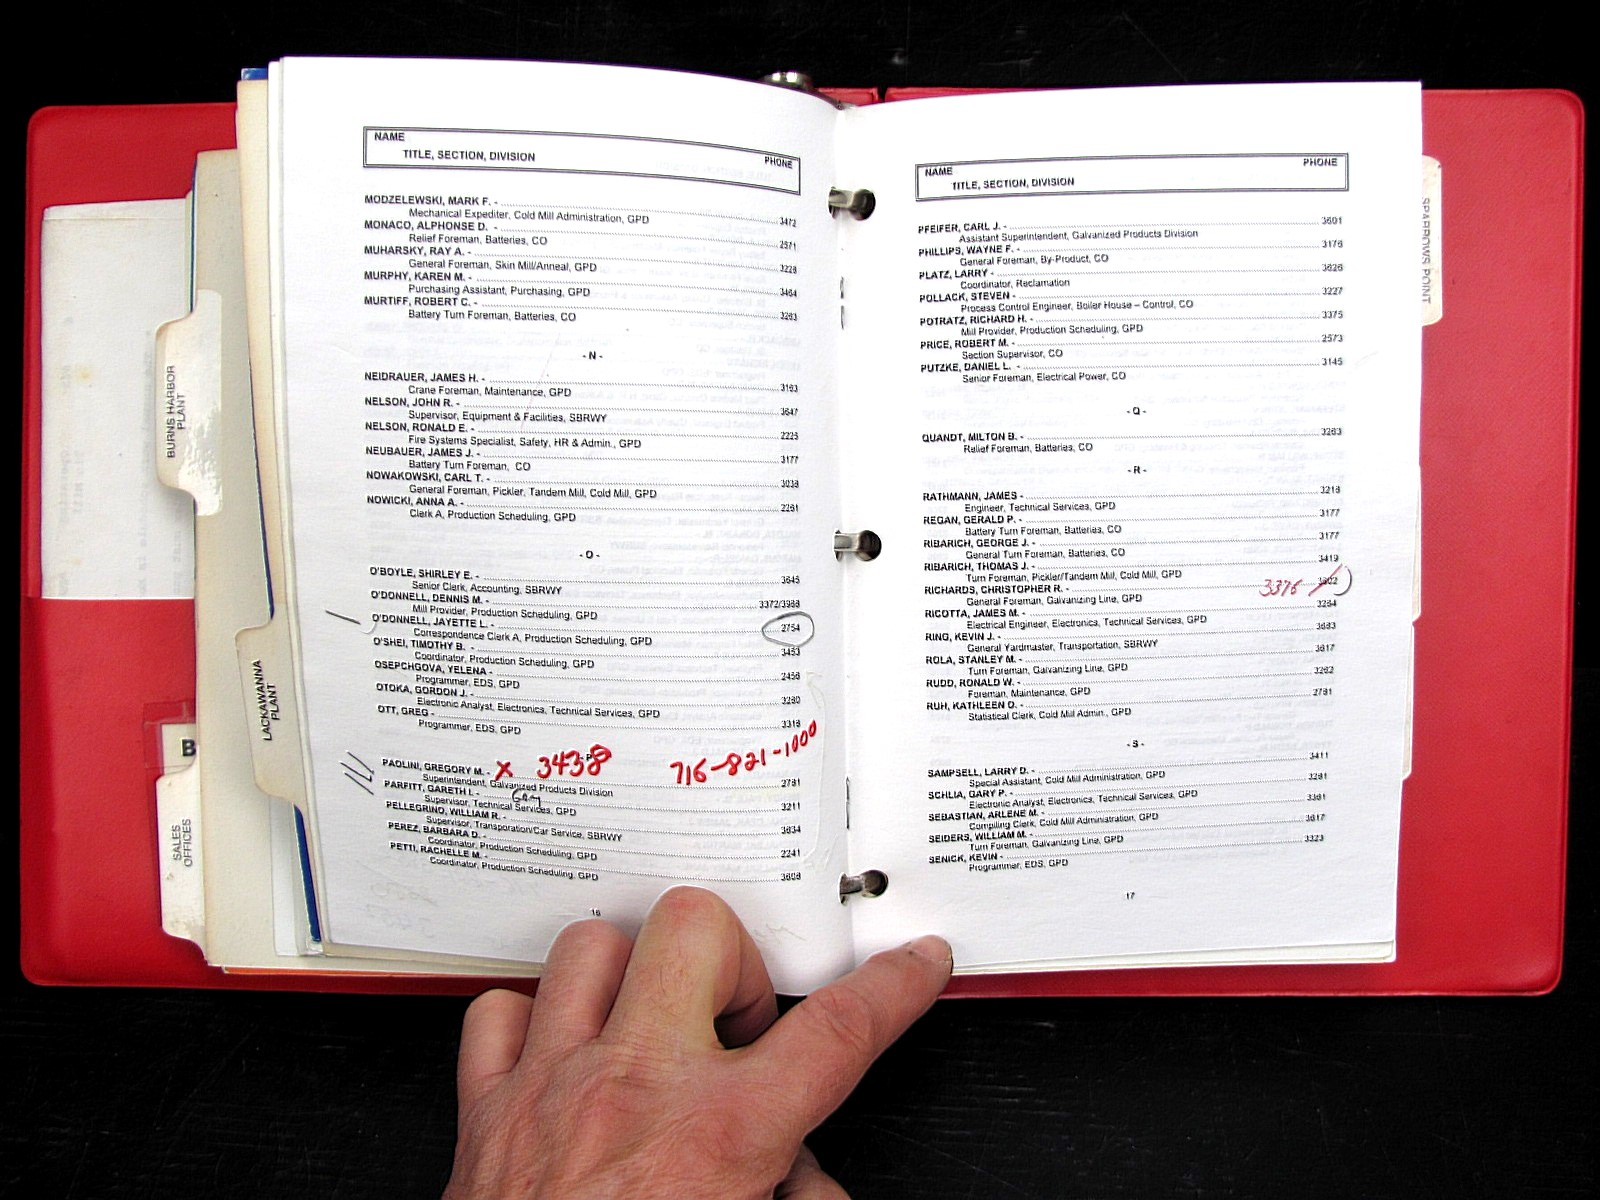 NAME
TITLE, SECTION, DIVISION PHONE
MODZELEWSKI, MARK F. - 3472
Mechanical Expediter, Cold Mill Administration, GPD
MONACO, ALPHONSE D. - 2571
Relief Foreman, Batteries, CO
MUHARSKY, RAY A. - 3228
General Foreman, Skin Mill/Anneal, GPD
MURPHY, KAREN M. - 3464
Purchasing Assistant, Purchasing, GPD
MURTIFF, ROBERT C. - 3263
Battery Turn Foreman, Batteries, CO
- N -
NEIDRAUER, JAMES H. - 3163
Crane Foreman, Maintenance, GPD
NELSON, JOHN R. - 3647
Supervisor, Equipment & Facilities, SBRWY
NELSON, RONALD E. - 2225
Fire Systems Specialist, Safety, HR & Admin., GPD
NEUBAUER, JAMES J. - 3177
Battery Turn Foreman, CO
NOWAKOWSKI, CARL T. - 3038
General Foreman, Pickler, Tandem Mill, Cold Mill, GPD
NOWICKI, ANNA A. - 2261
Clerk A, Production Scheduling, GPD
- O -
O'BOYLE, SHIRLEY E. - 3645
Senior Clerk, Accounting, SBRWY
O'DONNELL, DENNIS M. - 3372/3988
Mill Provider, Production Scheduling, GPD
O'DONNELL, JAYETTE L. - 2754
Correspondence Clerk A, Production Scheduling, GPD
O'SHEI, TIMOTHY B. - 3453
Coordinator, Production Scheduling, GPD
OSEPCHGOVA, YELENA - 2456
Programmer, EDS, GPD
OTOKA, GORDON J. - 3280
Electronic Analyst, Electronics, Technical Services, GPD
OTT, GREG - 3318
Programmer, EDS, GPD
PAOLINI, GREGORY M. - x 3438 716-821-1000 2781
Superintendent, Galvanized Products Division
PARFITT, GARETH I. - Gary 3211
Supervisor, Technical Services, GPD
PELLEGRINO, WILLIAM R. - 3634
Supervisor, Transporation/Car Service, SBRWY
PEREZ, BARBARA D. - 2241
Coordinator, Production Scheduling, GPD
PETTI, RACHELLE M. - 3608
Coordinator, Production Scheduling, GPD
16
NAME PHONE
TITLE, SECTION, DIVISION
PFEIFER, CARL J. - 3601
Assistant Superintendent, Galvanized Products Division
PHILLIPS, WAYNE F. - 3176
General Foreman, By-Product, CO
PLATZ, LARRY - 3626
Coordinator, Reclamation
POLLACK, STEVEN - 3227
Process Control Engineer, Boiler House – Control, CO
POTRATZ, RICHARD H. - 3375
Mill Provider, Production Scheduling, GPD
PRICE, ROBERT M. - 2573
Section Supervisor, CO
PUTZKE, DANIEL L. - 3145
Senior Foreman, Electrical Power, CO
- Q -
QUANDT, MILTON B. - 3263
Relief Foreman, Batteries, CO
- R -
RATHMANN, JAMES - 3218
Engineer, Technical Services, GPD
REGAN, GERALD P. - 3177
Battery Turn Foreman, Batteries, CO
RIBARICH, GEORGE J. - 3177
General Turn Foreman, Batteries, CO
RIBARICH, THOMAS J. - 3419
Turn Foreman, Pickler/Tandem Mill, Cold Mill, GPD
RICHARDS, CHRISTOPHER R. - 3376
General Foreman, Galvanizing Line, GPD
RICOTTA, JAMES M. - 3284
Electrical Engineer, Electronics, Technical Services, GPD
RING, KEVIN J. - 3683
General Yardmaster, Transportation, SBRWY
ROLA, STANLEY M. - 3617
Turn Foreman, Galvanizing Line, GPD
RUDD, RONALD W. - 3262
Foreman, Maintenance, GPD
RUH, KATHLEEN D. - 2791
Statistical Clerk, Cold Mill Admin., GPD
- S -
SAMPSELL, LARRY D. - 3411
Special Assistant, Cold Mill Administration, GPD
SCHLIA, GARY P. - 3281
Electronic Analyst, Electronics, Technical Services, GPD
SEBASTIAN, ARLENE M. - 3361
Compiling Clerk, Cold Mill Administration, GPD
SEIDERS, WILLIAM M. - 3617
Turn Foreman, Galvanizing Line, GPD
SENICK, KEVIN - 3323
Programmer, EDS, GPD
17
BURNS HARBOR
PLANT
LACKAWANNA
PLANT
B
SALES
OFFICES
SPARROWS POINT